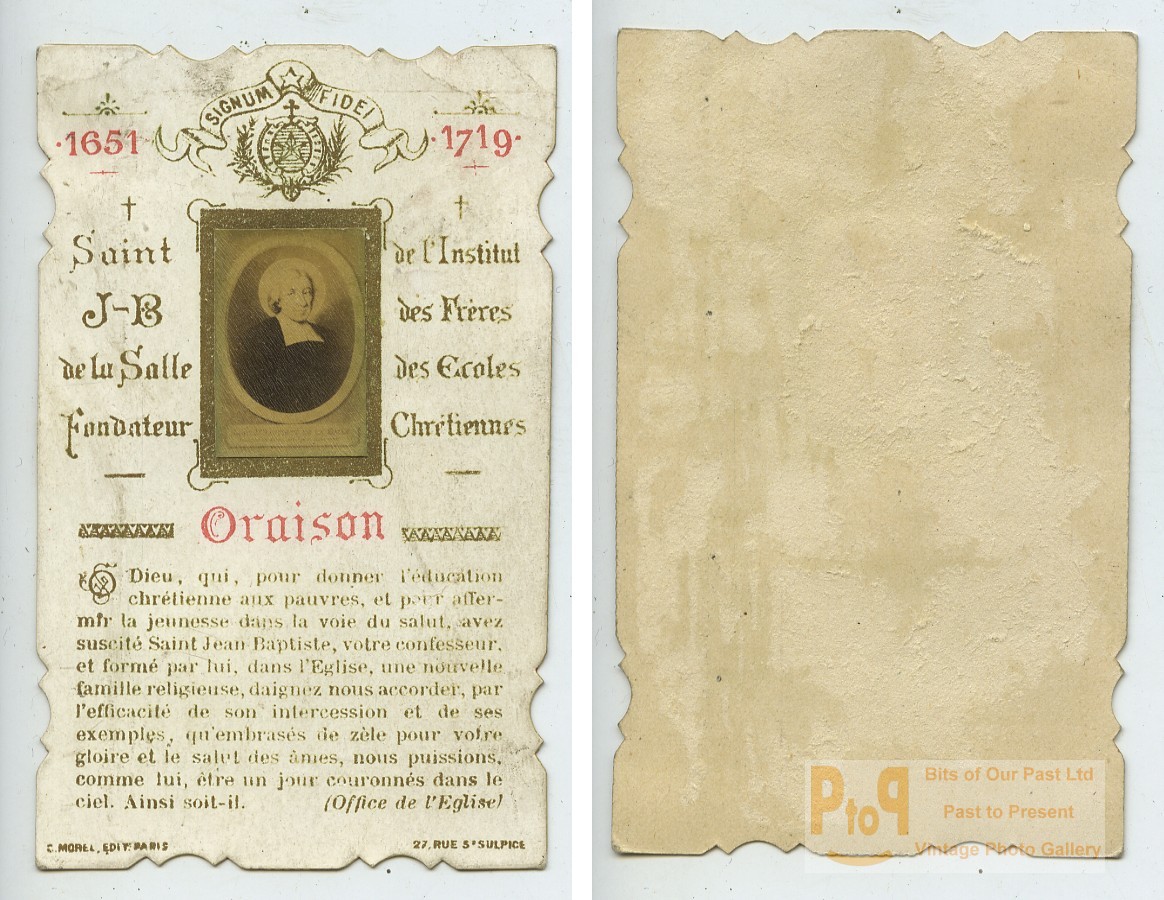 SIGNUM FIDEI
·1651· ·1719·
Saint
J-B
de la Salle
Fondateur
de l'Institut
des Frères
des Ecoles
Chrétiennes
Oraison
O Dieu, qui, pour donner l'éducation
chrétienne aux pauvres, et pour affer-
mir la jeunesse dans la voie du salut, avez
suscité Saint Jean Baptiste, votre confesseur,
et formé par lui, dans l'Eglise, une nouvelle
famille religieuse, daignez nous accorder, par
l'efficacité de son intercession et de ses
exemples, qu'embrasés de zèle pour votre
gloire et le salut des âmes, nous puissions,
comme lui, être un jour couronnés dans le
ciel. Ainsi soit-il. (Office de l'Eglise)
C. MOREL, EDIT. PARIS 27, RUE St SULPICE
PtoP
Bits of Our Past Ltd
Past to Present
Vintage Photo Gallery